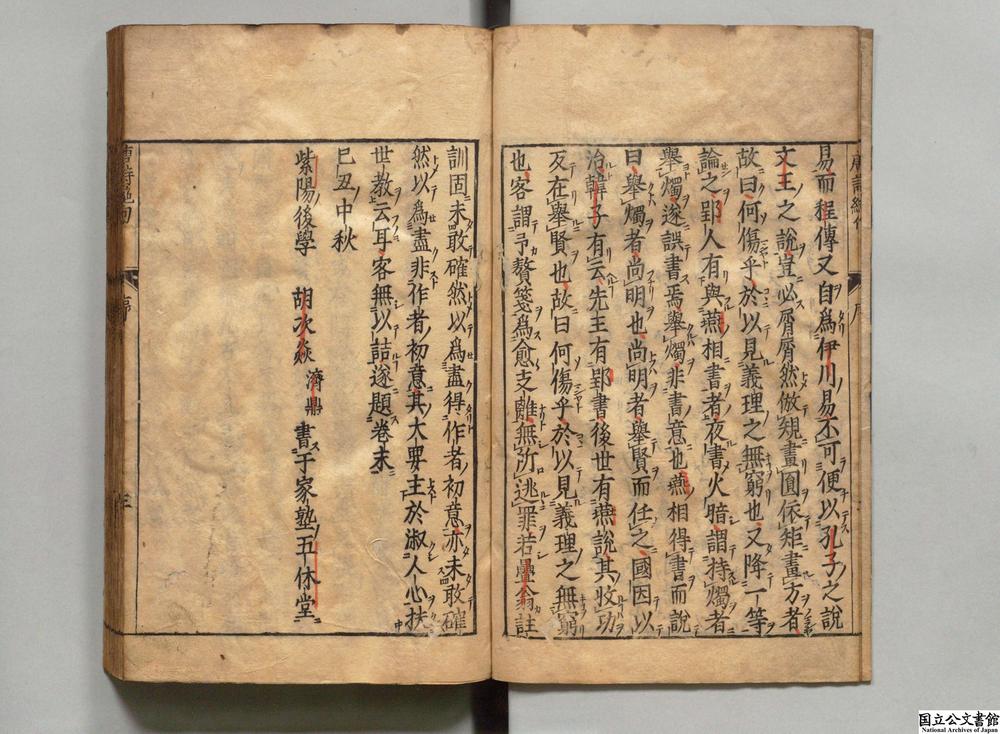 易而程傳又自為伊川易不可便以孔子之說
文王之說豈必屑屑然倣規畫圓依矩畫方者
故曰何傷乎於以見義理之無窮也又降一等
論之郢人有與燕相書者夜書火暗謂持燭者
舉燭遂誤書焉舉燭非書意也燕相得書而說
曰舉燭者尚明也尚明者舉賢而任之國因以
治韓子有云先王有郢書後世有燕說其收功
反在舉賢也故曰何傷乎於以見義理之無窮
也客謂予贅箋為愈支離無所逃罪若疊翁註
訓固未敢確然以為盡得作者初意亦未敢確
然以為盡非作者初意其大要主於淑人心扶
世教云耳客無以詰遂題卷末
己丑中秋
紫陽後學 胡次焱 濟鼎 書于家塾五休堂
唐詩絕句 序
国立公文書館
National Archives of Japan